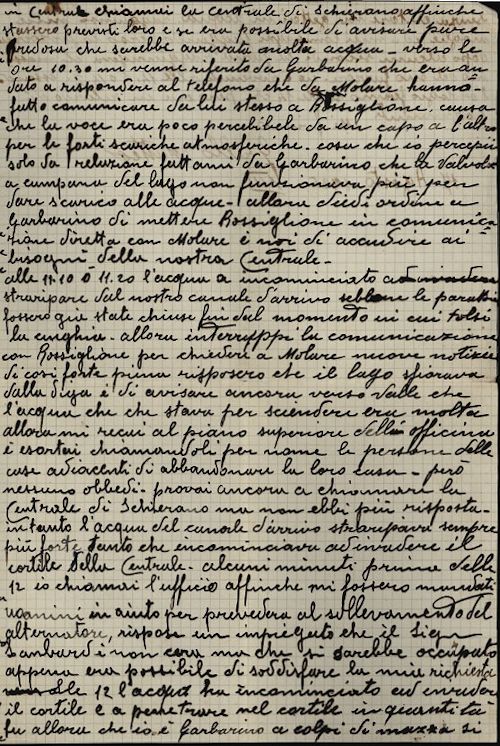 in Centrale chiamai la centrale di Schierano affinche
stassero previsti loro e se era possibile di avisare pure
Predosa che sarebbe arrivata molta acqua - verso le
ore 10.30 mi venne riferito da Garbarino che era an
dato a rispondere al telefono che da Molare hanno
fatto comunicare da lui stesso a Rossiglione, causa
che la voce era poco percelibele da un capo a l'altro
per le forti scariche atmosferiche - cosa che io percepii
solo da relazione fattami da Garbarino che la valvola
a campana del lago non funzionava più per
dare scarico alle acque - allora diedi ordine a
Garbarino di mettere Rossiglione in comunica
zione diretta con Molare e non di accudire ai
bisogni della nostra Centrale -
alle 11.10 o 11.20 l'acqua a incominciato
straripare dal nostro canale d'arrivo sebbene le paratoie
fossero già state chiuse fin dal momento in cui tolsi
la cinghia - allora interruppi la comunicazione
con Rossiglione per chiedere a Molare nuove notizie
di cosi forte piena risposero che il lago sfiorava
dalla diga e di avisare ancora verso valle che
l'acqua che che stava per scendere era molta
allora mi recai al piano superiore dell'officina
e esortai chiamandoli per nome le persone delle
case adiacenti di abbandonare la loro casa - però
nessuno obbedi - provai ancora a chiamare la
Centrale di Schierano ma non ebbi più risposta -
intanto l'acqua del canale d'arrivo straripava sempre
più forte tanto che incominciava ad invadere il
cortile della Centrale - alcuni minuti prima delle
12 io chiamai l'ufficio affinche mi fossero mandati
uomini in aiuto per prevedera al sollevamento del
alternatore, rispose un impiegato che il Sign
Lambardi non cera ma che si sarebbe occupato
appena era possibile di soddisfare la mia richiesta
alle 12 l'acqua ha incominciato ad invader
il cortile e a penetrare nel cortile in quantità
fu allora che io e Garbarino a colpi di mazza si